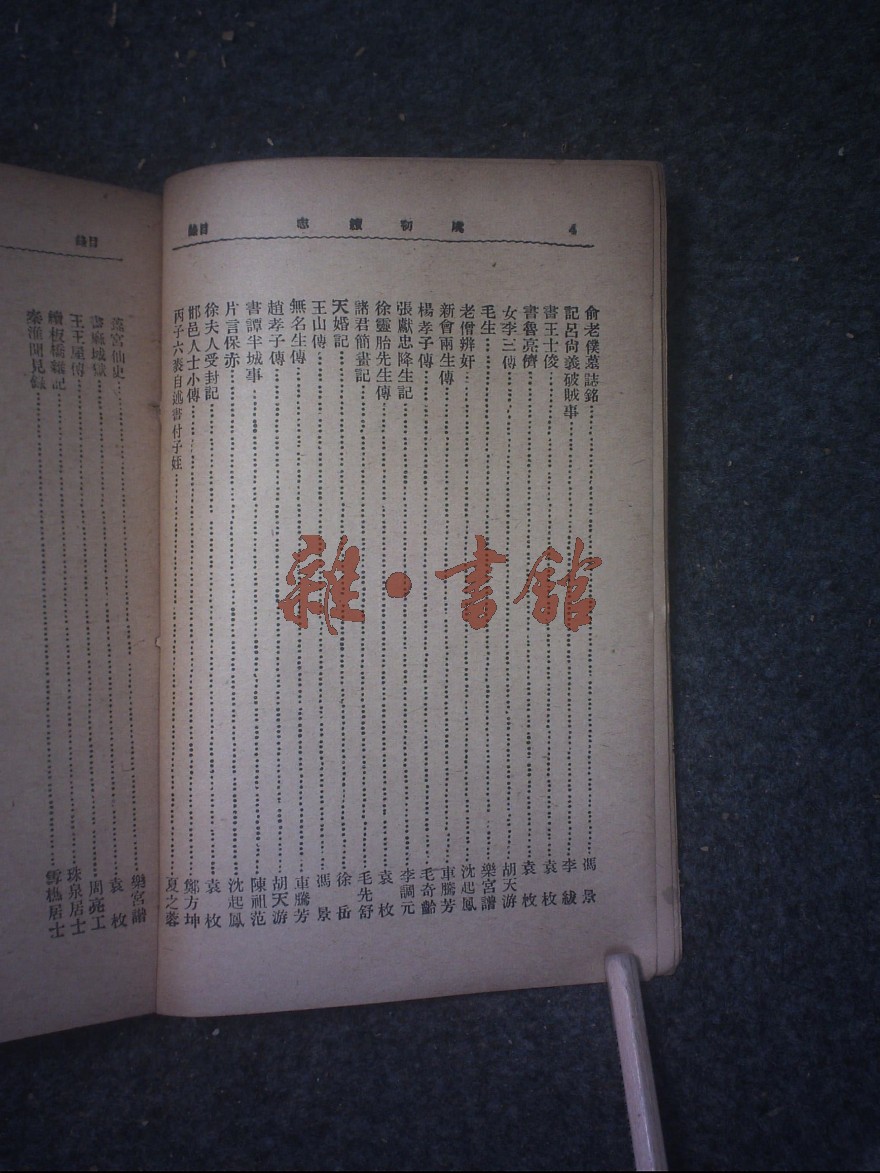 4 虞初續志 目錄
俞老僕墓誌銘 馮景
記呂尚義破賊事 李紱
書王士俊 袁枚
書魯亮儕 袁枚
女李三傳 胡天游
毛生 樂宮譜
老僧辨奸 沈起鳳
新會兩生傳 車騰芳
楊孝子傳 毛奇齡
張獻忠降生記 李調元
徐靈胎先生傳 袁枚
諸君簡畫記 毛先舒
天婚記 徐岳
王山傳 馮景
無名生傳 車騰芳
趙孝子傳 胡天游
書譚半城事 陳祖范
片言保赤 沈起鳳
徐夫人受封記 袁枚
邯邑人士小傳 鄭方坤
丙子六袠自述書付子姪 夏之蓉
目錄
蕊宮仙史 樂宮譜
書麻城獄 袁枚
王王屋傳 周亮工
續板橋雜記 珠泉居士
秦淮聞見錄 雪樵居士
雜·書館